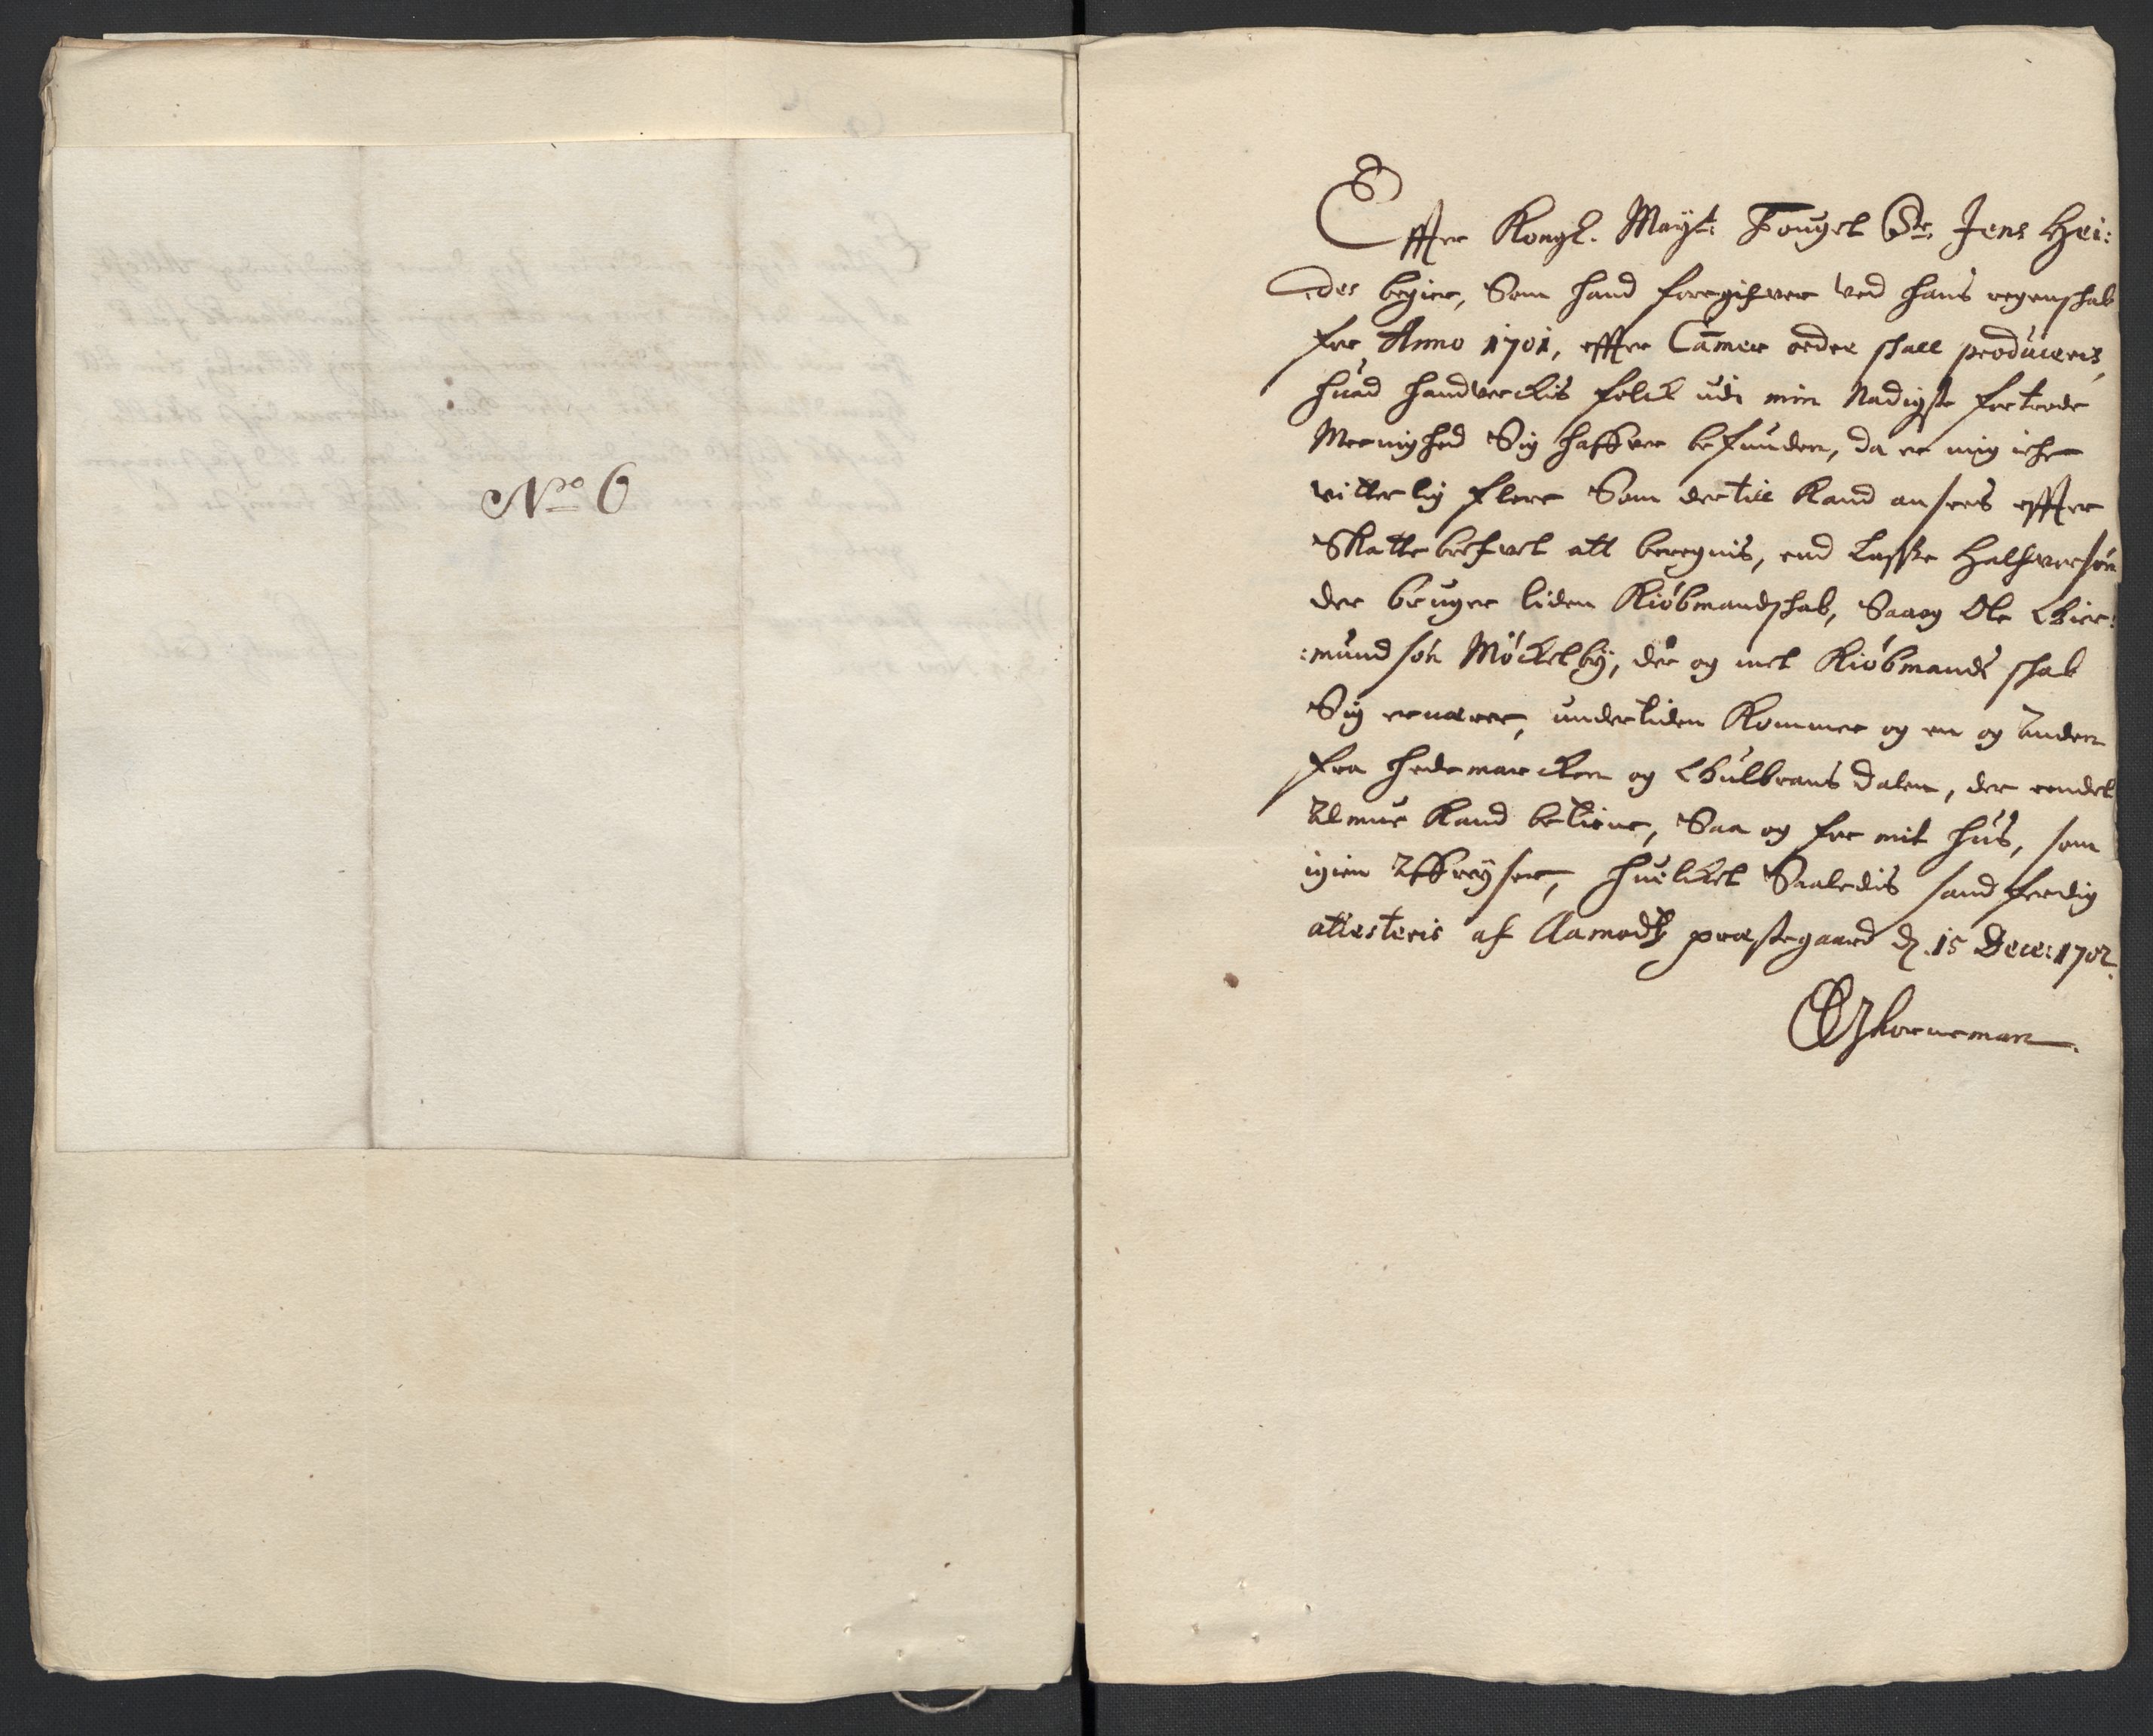 No 6
Effter Kongl. Mayts: Fouget Sr. Jens Hei:
:des begier, Som hand foregifver ved hans regenskab
for Anno 1701, effter Camer ordre skall produceris,
huad handverckis folck udi min Nadigste fortrode
Meenighed Sig haffver befunden, da er mig iche
vitterlig flere Som dertill Kand ansees effter
Skatte brefvet att beregnis, end Lasse Halfversøn
der bruger liden Kiøbmandskab, Saa og Ole Gier:
:mundsøn Møckelby, der og met Kiøbmands skab
Sig ernærer, undertiden Kommer og en og anden
fra Hedemarcken og Gulbrans dalen, der
Almue Kand betiene, Saa og for mit Hus, som
igien affreyser, huilcket Saaledis sandferdig
attesteris af Aamods præstegaard d. 15 Dece: 1702.
Horneman.